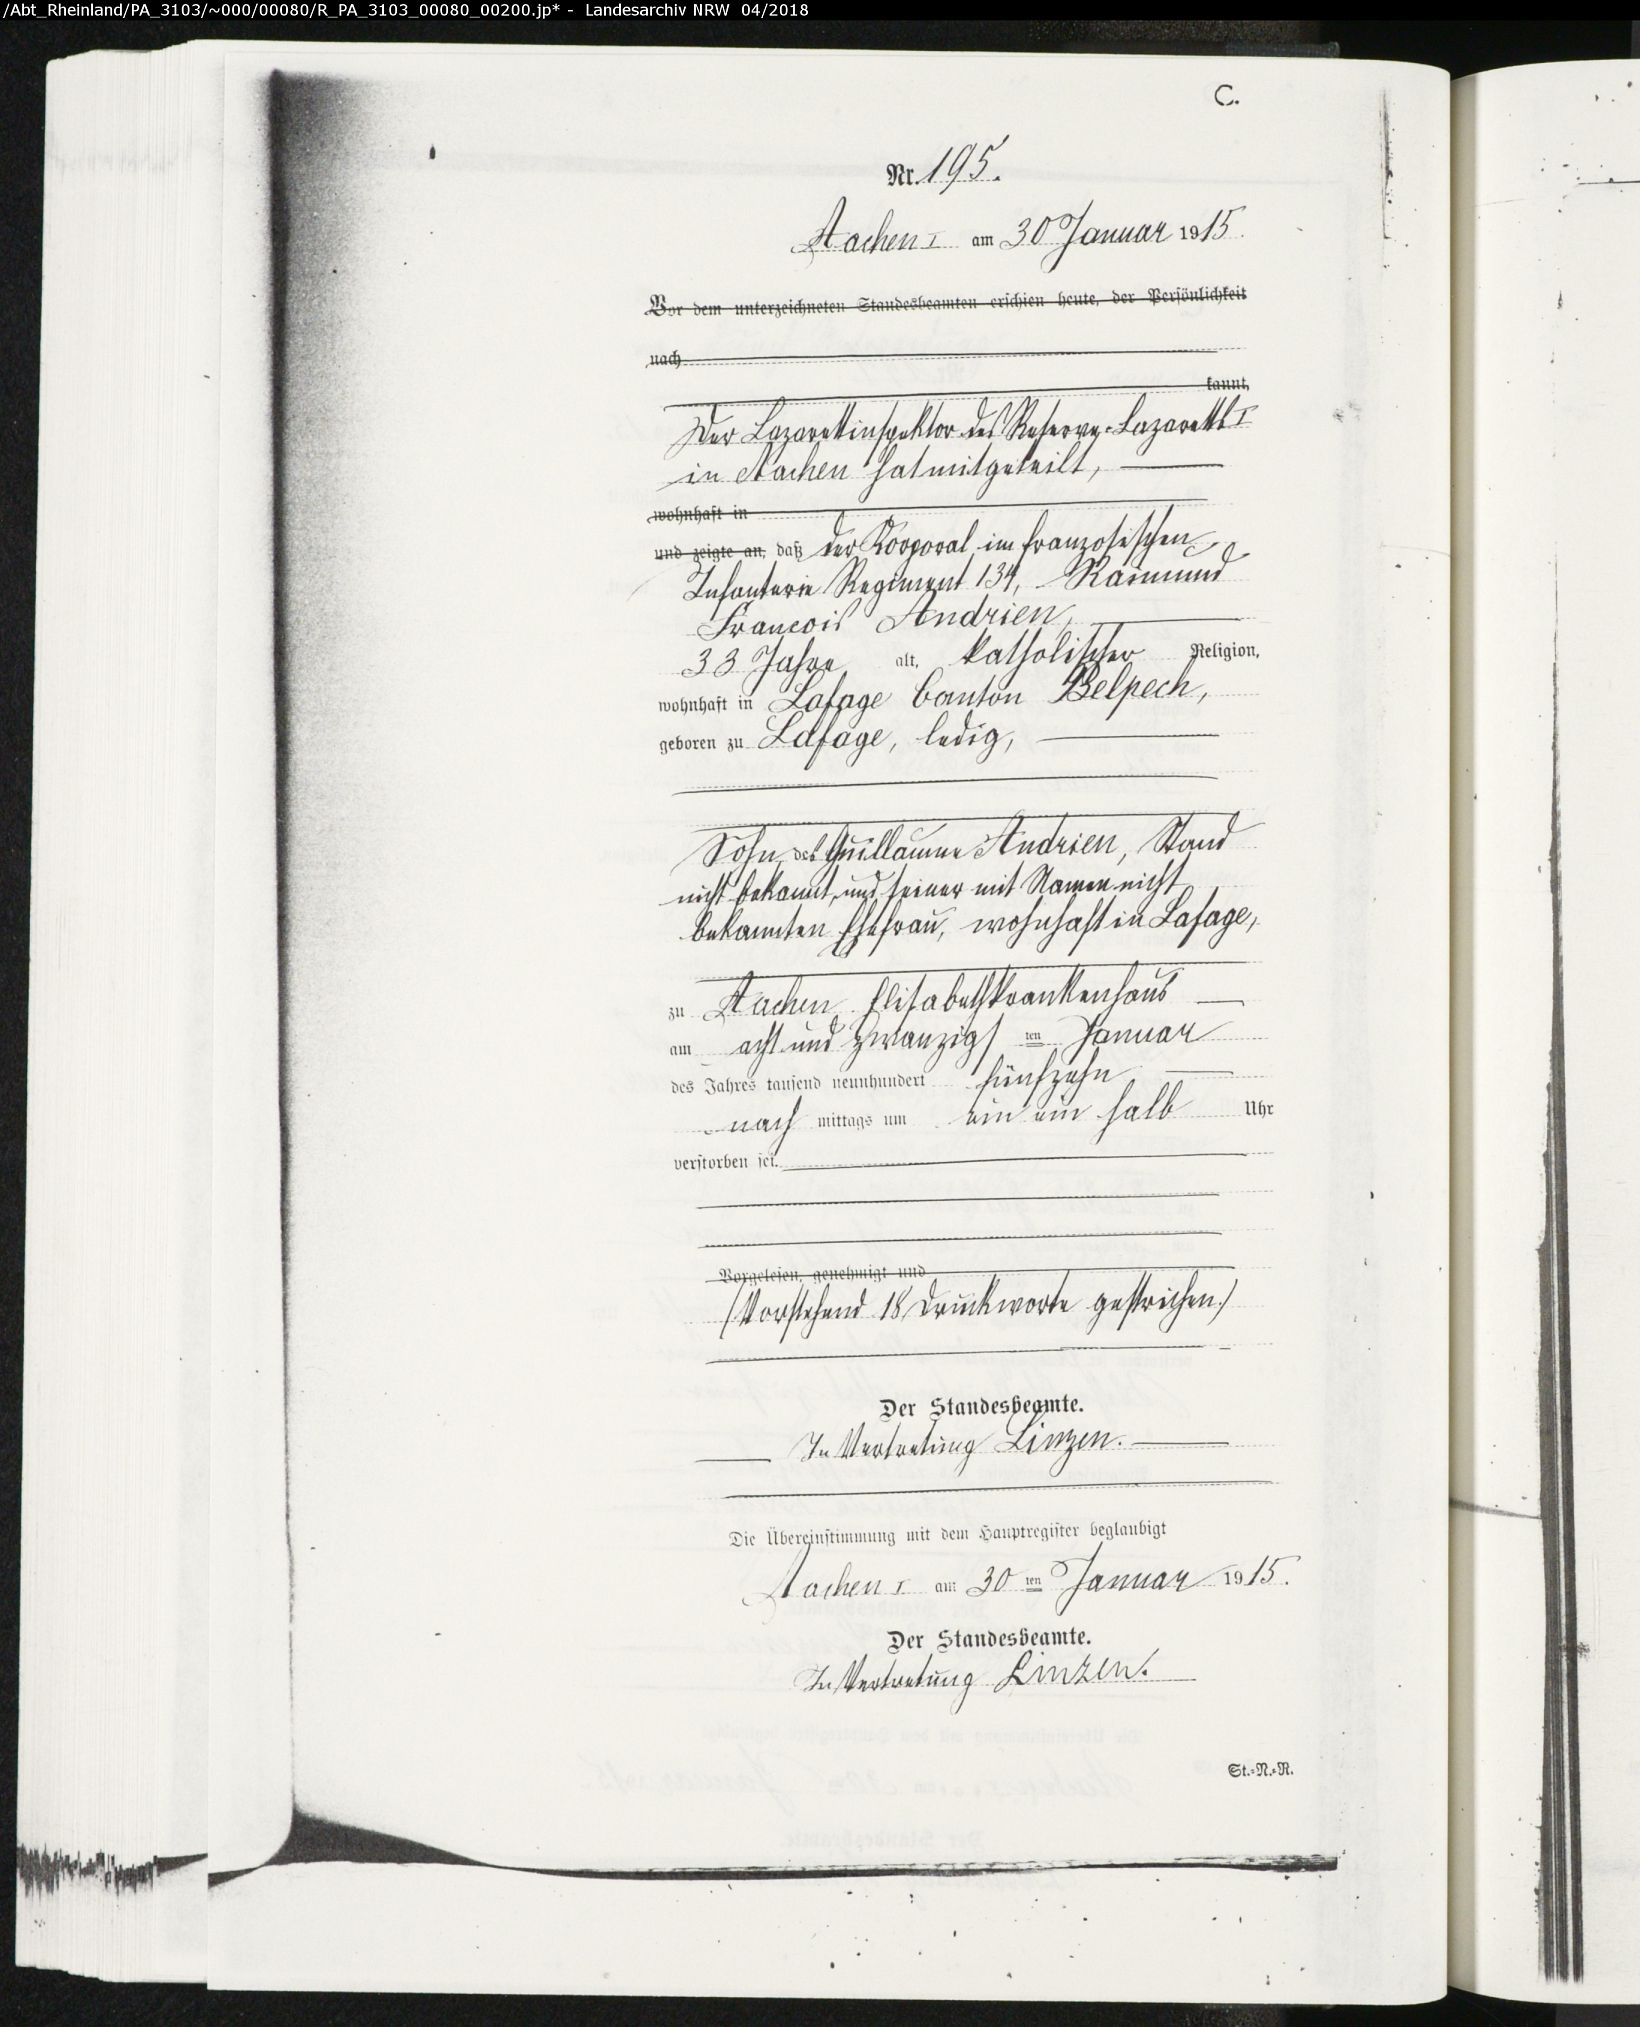 /Abt_Rheinland/PA_3103/~000/00080/R_PA_3103_00080_00200.jp* - Landesarchiv NRW 04/2018
C.
Nr. 195.
Aachen I am 30 Januar 1915.
Vor dem unterzeichneten Standesbeamten erschien heute, der Persönlichkeit
nach
kannt,
Der Lazarettinspektor des Reserve-Lazaretts I
in Aachen hat mitgeteilt,
wohnhaft in
und zeigte an, daß der Korporal im französischen
Infanterie Regiment 134, Raimund
Francois Andrien,
33 Jahre alt, katholischer Religion,
wohnhaft in Lafage Canton Belpech,
geboren zu Lafage, ledig,
Sohn des Guillaume Andrien, Stand
nicht bekannt, und seiner mit Namen nicht
bekannten Ehefrau, wohnhaft in Lafage,
zu Aachen Elisabethkrankenhaus
am acht und zwanzigs ten Januar
des Jahres tausend neunhundert fünfzehn
nach mittags um ein ein halb Uhr
verstorben sei.
Vorgelesen, genehmigt und
(Vorstehend 18 Druckworte gestrichen.)
Der Standesbeamte.
In Vertretung Linzen.
Die Übereinstimmung mit dem Hauptregister beglaubigt
Aachen I am 30 ten Januar 1915.
Der Standesbeamte.
In Vertretung Linzen.
St.=N.=R.